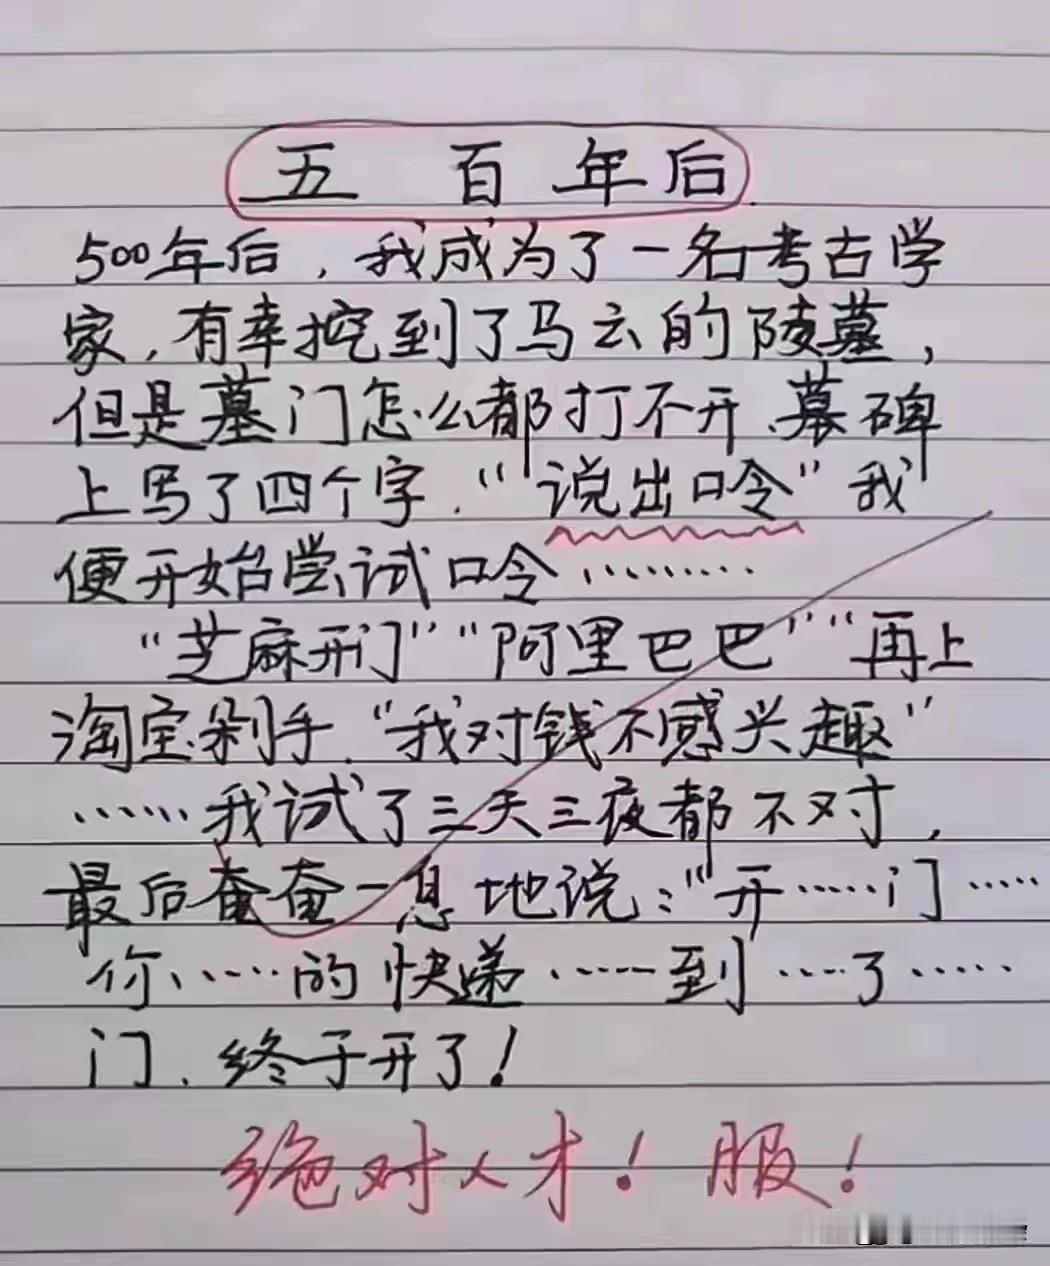 五百年后
500年后，我成为了一名考古学
家，有幸挖到了马云的陵墓，
但是墓门怎么都打不开、墓碑
上写了四个字．“说出口令”我
便开始尝试口令………
“芝麻开门”“阿里巴巴”“再上
淘宝剁手．“我对钱不感兴趣”
……我试了三天三夜都不对，
最后奄奄一息地说：“开……门……
你……的快递……到……了……
门、终于开了！
绝对人才！服！